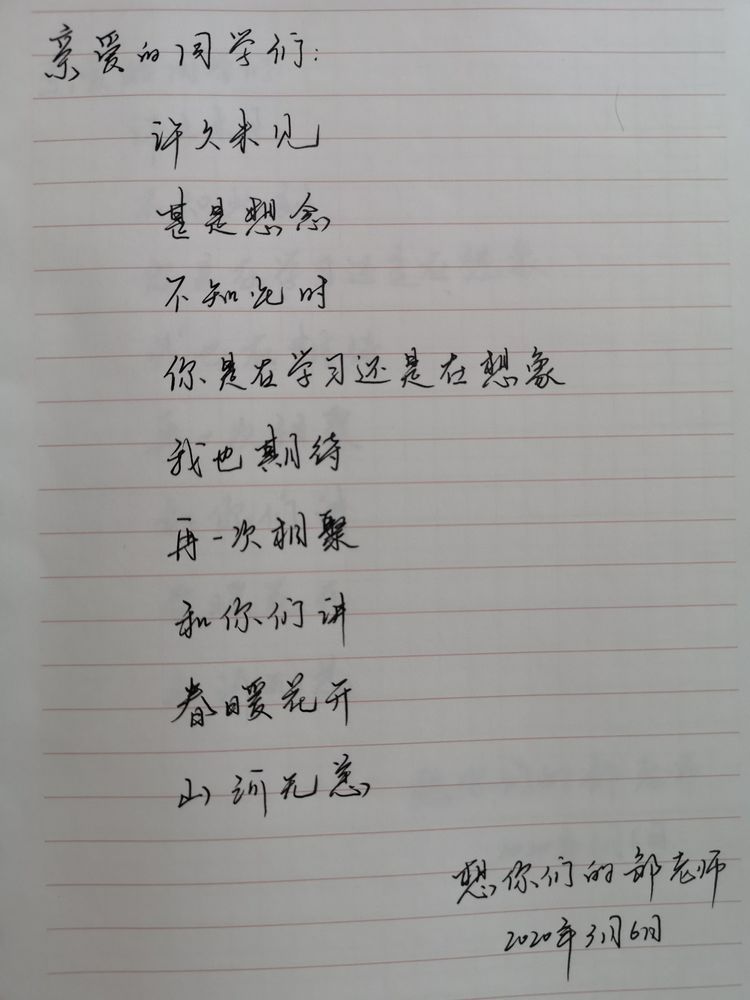 亲爱的同学们:
许久未见
甚是想念
不知此时
你是在学习还是在想象
我也期待
再一次相聚
和你们讲
春暖花开
山河无恙
想你们的部老师
2020年3月6日